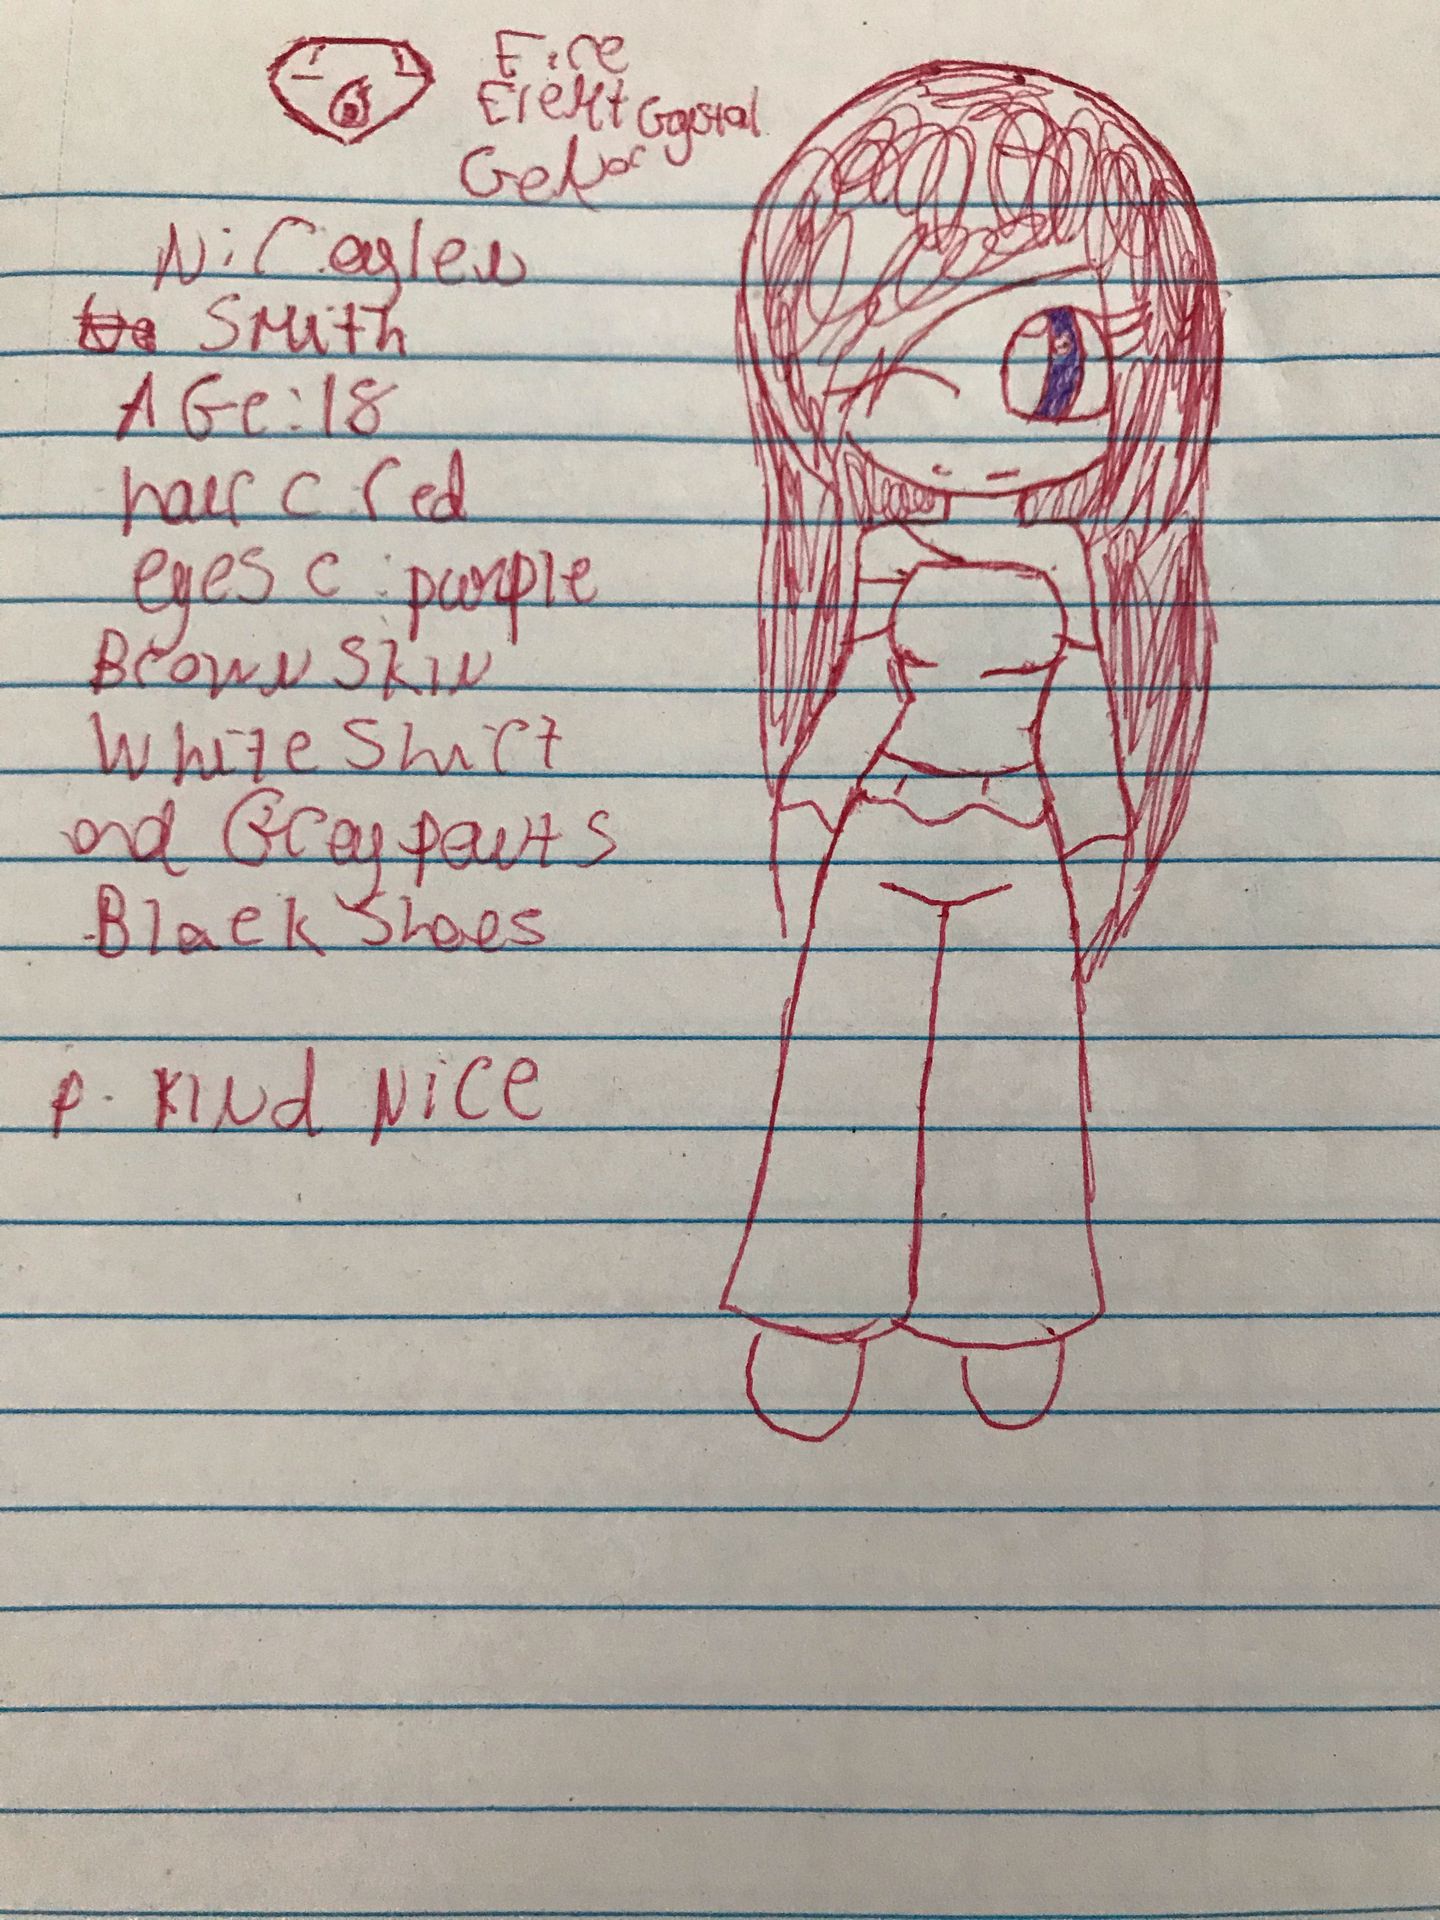 Fire
Elemt Gystal
Smith
AGe:18
hair c red
eyes c:purple
Brown Skin
White Shirt
and Gray pants
Black Shoes
P. Kind Nice